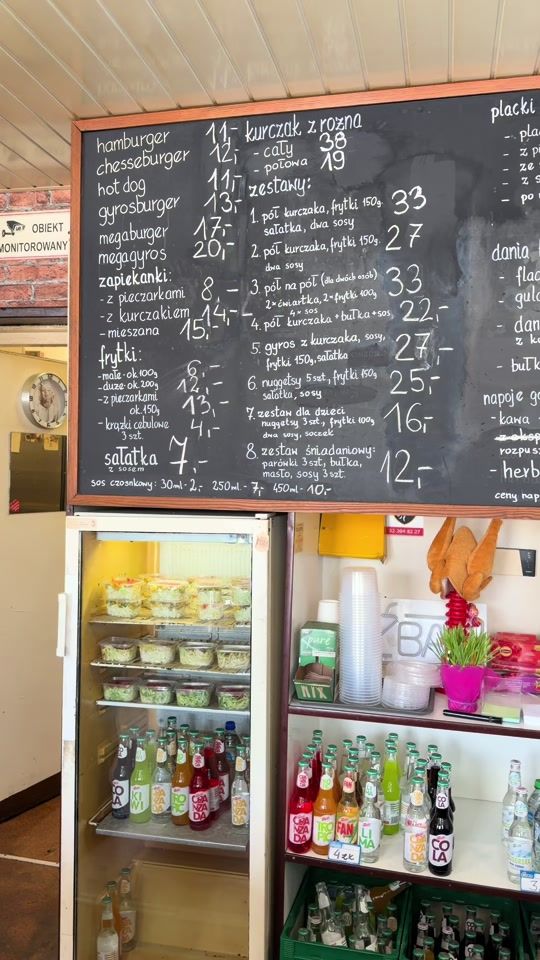 hamburger 11,-
chesseburger 12,-
hot dog 11,-
gyrosburger 13,-
megaburger 17,-
megagyros 20,-
zapiekanki:
- z pieczarkami 8,-
- z kurczakiem 14,-
- mieszana 15,-
frytki:
- małe ok 100g 6,-
- duże ok. 200g 12,-
- z pieczarkami 13,-
ok. 150g
- krążki cebulowe 4,-
3 szt.
sałatka 7,-
z sosem
sos czosnkowy: 30ml - 2,- 250ml - 7,- 450ml - 10,-
kurczak z rożna
- cały 38
- połowa 19
zestawy:
1. pół kurczaka, frytki 150g 33
sałatka, dwa sosy
2. pół kurczaka, frytki 150g. 27
dwa sosy
3. pół na pół (dla dwóch osób) 33
2x ćwiartka, 2x frytki 100g
4x sos
4. pół kurczaka + bułka + sos 22,-
5. gyros z kurczaka, sosy, 27,-
frytki 150g, sałatka
6. nuggetsy 5szt, frytki 150g 25,-
sałatka, sosy
7. zestaw dla dzieci 16,-
nuggetsy 3szt., frytki 100g
dwa sosy, soczek
8. zestaw śniadaniowy: 12,-
parówki 3szt, bułka,
masło, sosy 3szt.
placki
- plac
- z pi
- ze
- z
- po
dania
- flac
- gula
- dan
z k
- bułk
napoje go
- kawa
rozpus
- herb
ceny nap
OBIEKT
MONITOROWANY
32 364 82 27
ŻBA
pure
NIX
COLA
KIWI
ORANŻADA
TROPIC
FAN
LIMA
ORANŻADA
COLA
4 zł
3